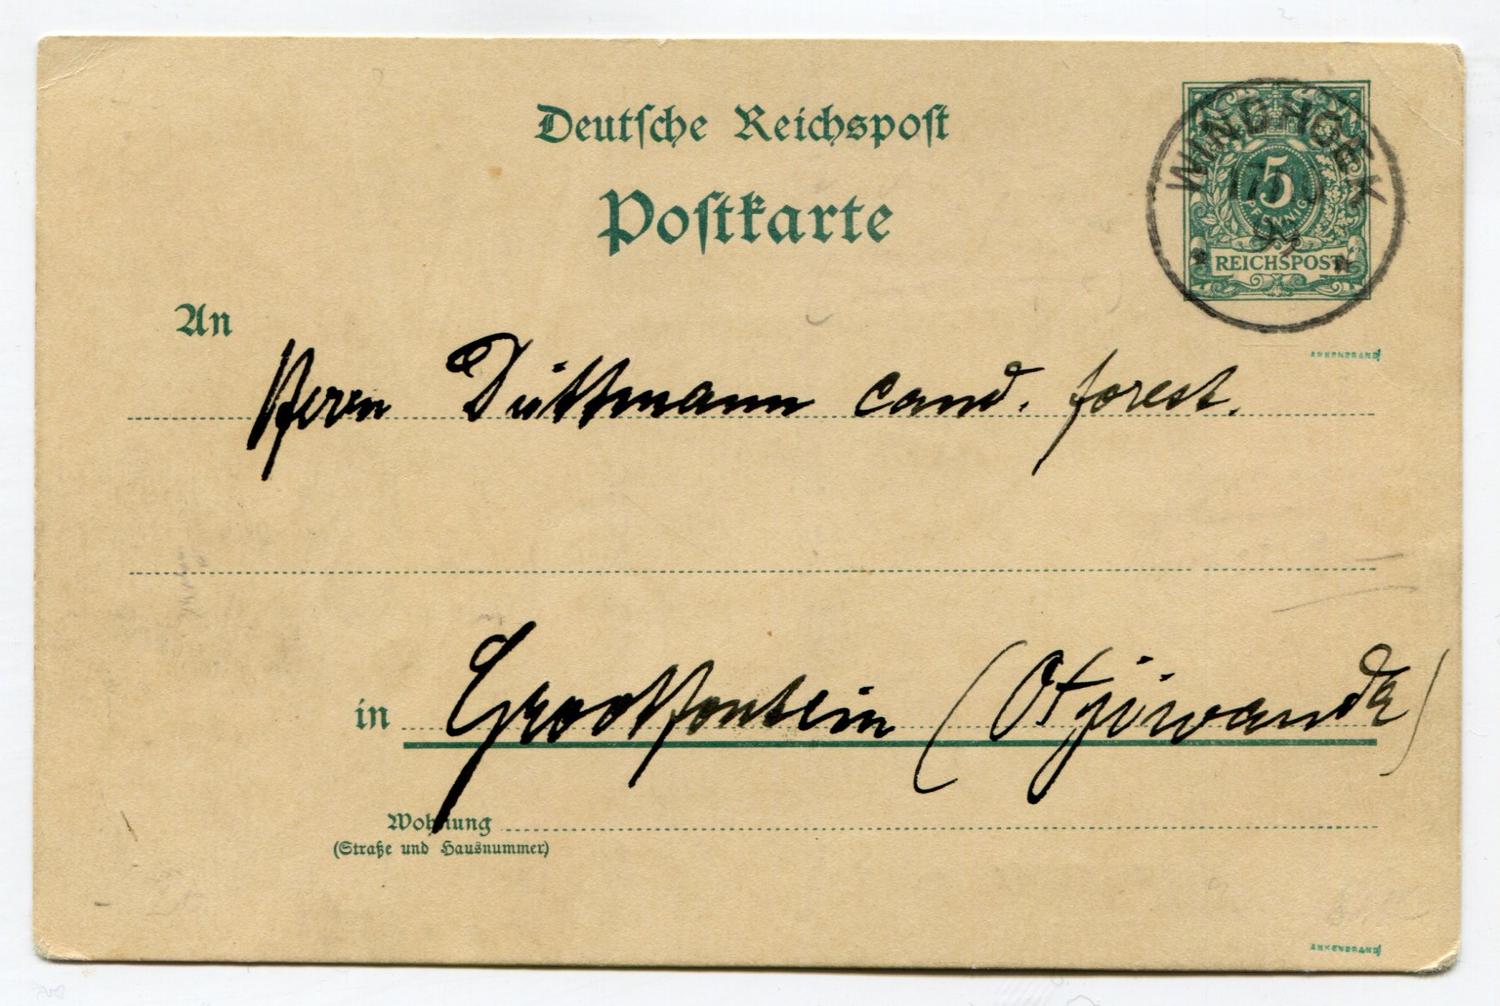 Deutsche Reichspost
Postkarte
WINDHOEK
5
PFENNIG
REICHSPOST
An
Herrn Düttmann cand. forest.
in Grootfontein (Otjiwanda)
Wohnung
(Straße und Hausnummer)